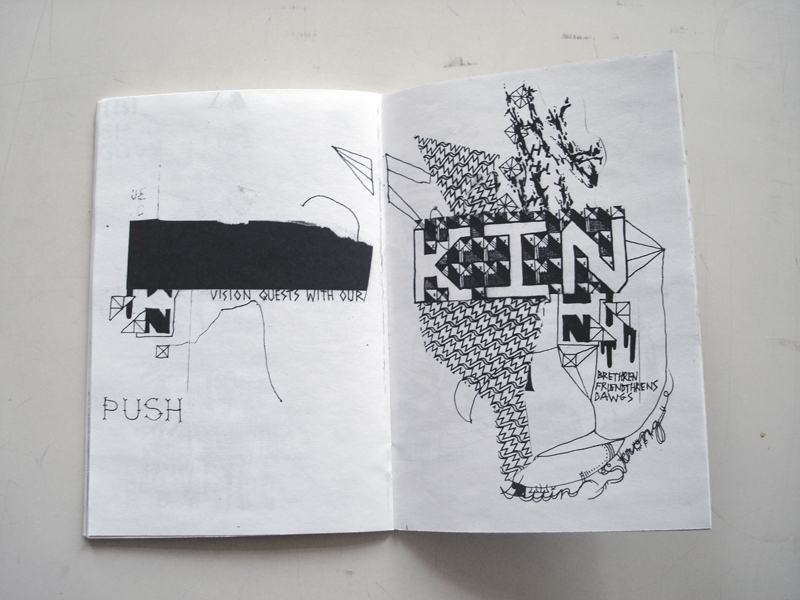 VISION QUESTS WITH OUR
N
PUSH
KIN
N
BRETHREN
FRIENDTHRENS
DAWGS